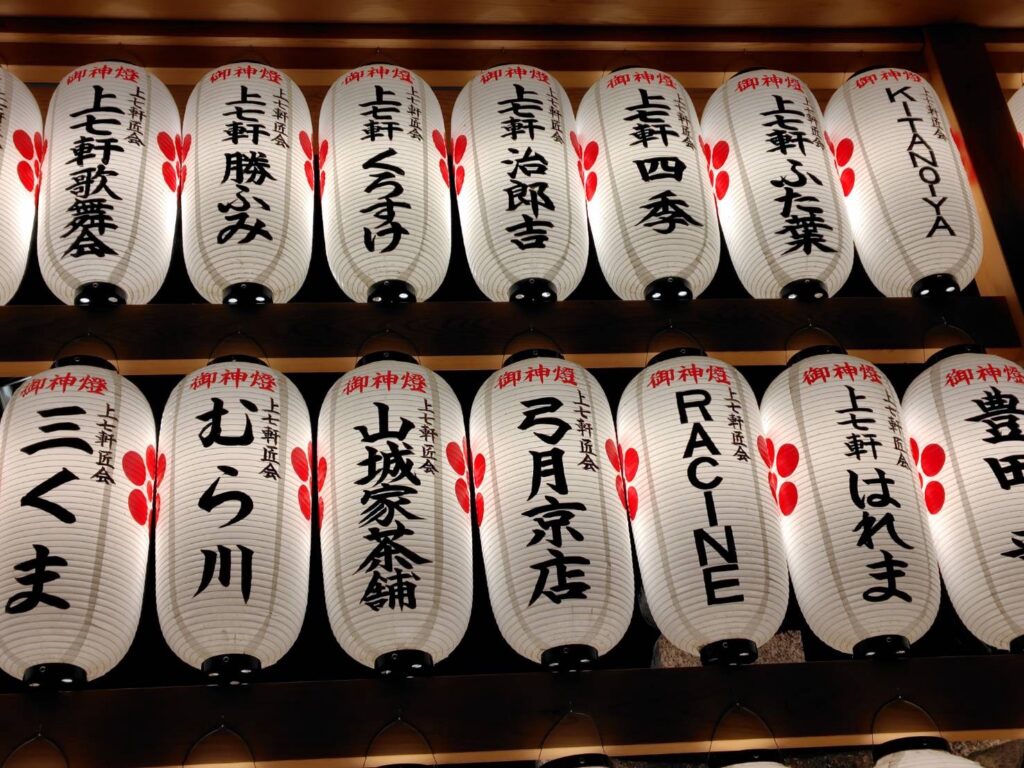 御神燈
上七軒匠会
上七軒歌舞会
御神燈
上七軒匠会
上七軒 勝ふみ
御神燈
上七軒匠会
上七軒 くろすけ
御神燈
上七軒匠会
上七軒 治郎吉
御神燈
上七軒匠会
上七軒 四季
御神燈
上七軒匠会
上七軒 ふた葉
御神燈
上七軒匠会
KITANOIYA
御神燈
上七軒匠会
三くま
御神燈
上七軒匠会
むら川
御神燈
上七軒匠会
山城家茶舗
御神燈
上七軒匠会
弓月京店
御神燈
上七軒匠会
RACINE
御神燈
上七軒匠会
上七軒 はれま
御神燈
豊田